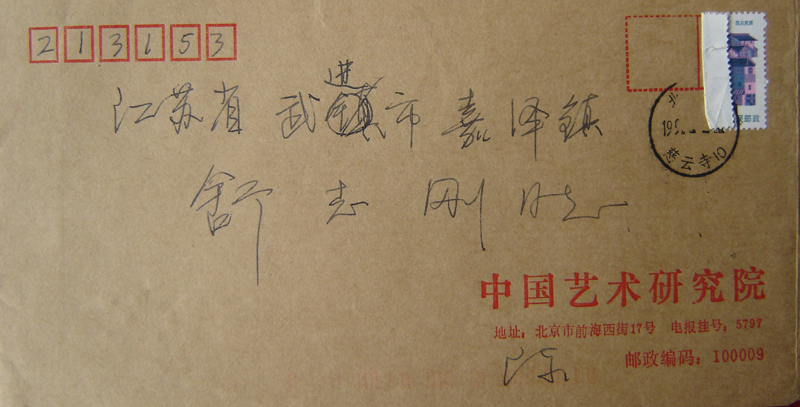 213153
江苏省 武进市 嘉泽镇
舒志刚 同志
中国艺术研究院
地址：北京市前海西街17号 电报挂号：5797
邮政编码：100009
陈
慈云寺10